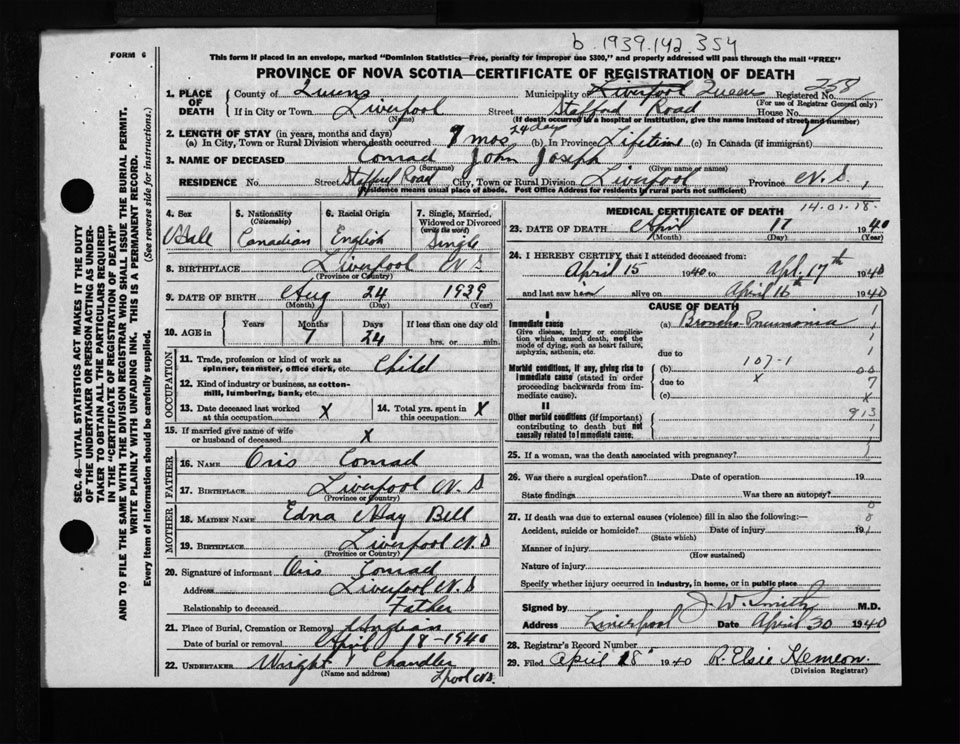 b. 1939.142.354
FORM 6
This form if placed in an envelope, marked "Dominion Statistics—Free, penalty for improper use $300," and properly addressed will pass through the mail "FREE"
PROVINCE OF NOVA SCOTIA—CERTIFICATE OF REGISTRATION OF DEATH
1. PLACE OF DEATH
County of Queens Municipality of Liverpool Queens Registered No. 258
(For use of Registrar General only)
If in City or Town Liverpool Street Stafford Road House No.
(Name) (If death occurred in a hospital or institution, give the name instead of street and number)
2. LENGTH OF STAY (in years, months and days)
(a) In City, Town or Rural Division where death occurred 7 mos 24 days (b) In Province Lifetime (c) In Canada (if immigrant)
3. NAME OF DECEASED Conrad John Joseph
(Surname) (Given name or names)
RESIDENCE No. Street Stafford Road City, Town or Rural Division Liverpool Province N.S.
(Residence means usual place of abode. Post Office Address for residents in rural parts not sufficient)
4. Sex
Male
5. Nationality
(Citizenship)
Canadian
6. Racial Origin
English
7. Single, Married, Widowed or Divorced
(write the word)
Single
8. BIRTHPLACE Liverpool N S
(Province or Country)
9. DATE OF BIRTH Aug 24 1939
(Month) (Day) (Year)
10. AGE in
Years Months Days If less than one day old
7 24 hrs. or min.
OCCUPATION
11. Trade, profession or kind of work as spinner, teamster, office clerk, etc. Child
12. Kind of industry or business, as cotton-mill, lumbering, bank, etc.
13. Date deceased last worked at this occupation X
14. Total yrs. spent in this occupation X
15. If married give name of wife or husband of deceased X
FATHER
16. NAME Oris Conrad
17. BIRTHPLACE Liverpool N. S
(Province or Country)
MOTHER
18. MAIDEN NAME Edna May Bell
19. BIRTHPLACE Liverpool N. S
(Province or Country)
20. Signature of informant Oris Conrad
Address Liverpool N. S
Relationship to deceased Father
21. Place of Burial, Cremation or Removal
Date of burial or removal April 18-1940
22. UNDERTAKER Wright & Chandler
(Name and address) Lpool N.S.
MEDICAL CERTIFICATE OF DEATH 14.01.18.
23. DATE OF DEATH April 17 1940
(Month) (Day) (Year)
24. I HEREBY CERTIFY that I attended deceased from:
April 15 1940 to Apl. 17th 1940
and last saw him alive on April 16th 1940
CAUSE OF DEATH
I
Immediate cause
Give disease, injury or complication which caused death, not the mode of dying, such as heart failure, asphyxia, asthenia, etc.
(a) Broncho Pneumonia
due to
107-1
Morbid conditions, if any, giving rise to immediate cause (stated in order proceeding backwards from immediate cause).
(b) X
due to
(c)
II
Other morbid conditions (if important) contributing to death but not causally related to immediate cause.
1
1
1
00
7
X
913
25. If a woman, was the death associated with pregnancy?
26. Was there a surgical operation? Date of operation 19
State findings Was there an autopsy?
27. If death was due to external causes (violence) fill in also the following:—
Accident, suicide or homicide? Date of injury 19
(State which)
Manner of injury
(How sustained)
Nature of injury
Specify whether injury occurred in industry, in home, or in public place
Signed by J. W. Smith M.D.
Address Liverpool Date April 30 1940
28. Registrar's Record Number
29. Filed April 18 1940 R. Elsie Hemeon.
(Division Registrar)
SEC. 46—VITAL STATISTICS ACT MAKES IT THE DUTY
OF THE UNDERTAKER OR PERSON ACTING AS UNDER-
TAKER TO OBTAIN ALL THE PARTICULARS REQUIRED
IN THE "CERTIFICATE OF REGISTRATION OF DEATH"
AND TO FILE THE SAME WITH THE DIVISION REGISTRAR WHO SHALL ISSUE THE BURIAL PERMIT.
WRITE PLAINLY WITH UNFADING INK. THIS IS A PERMANENT RECORD.
Every item of information should be carefully supplied. (See reverse side for instructions.)